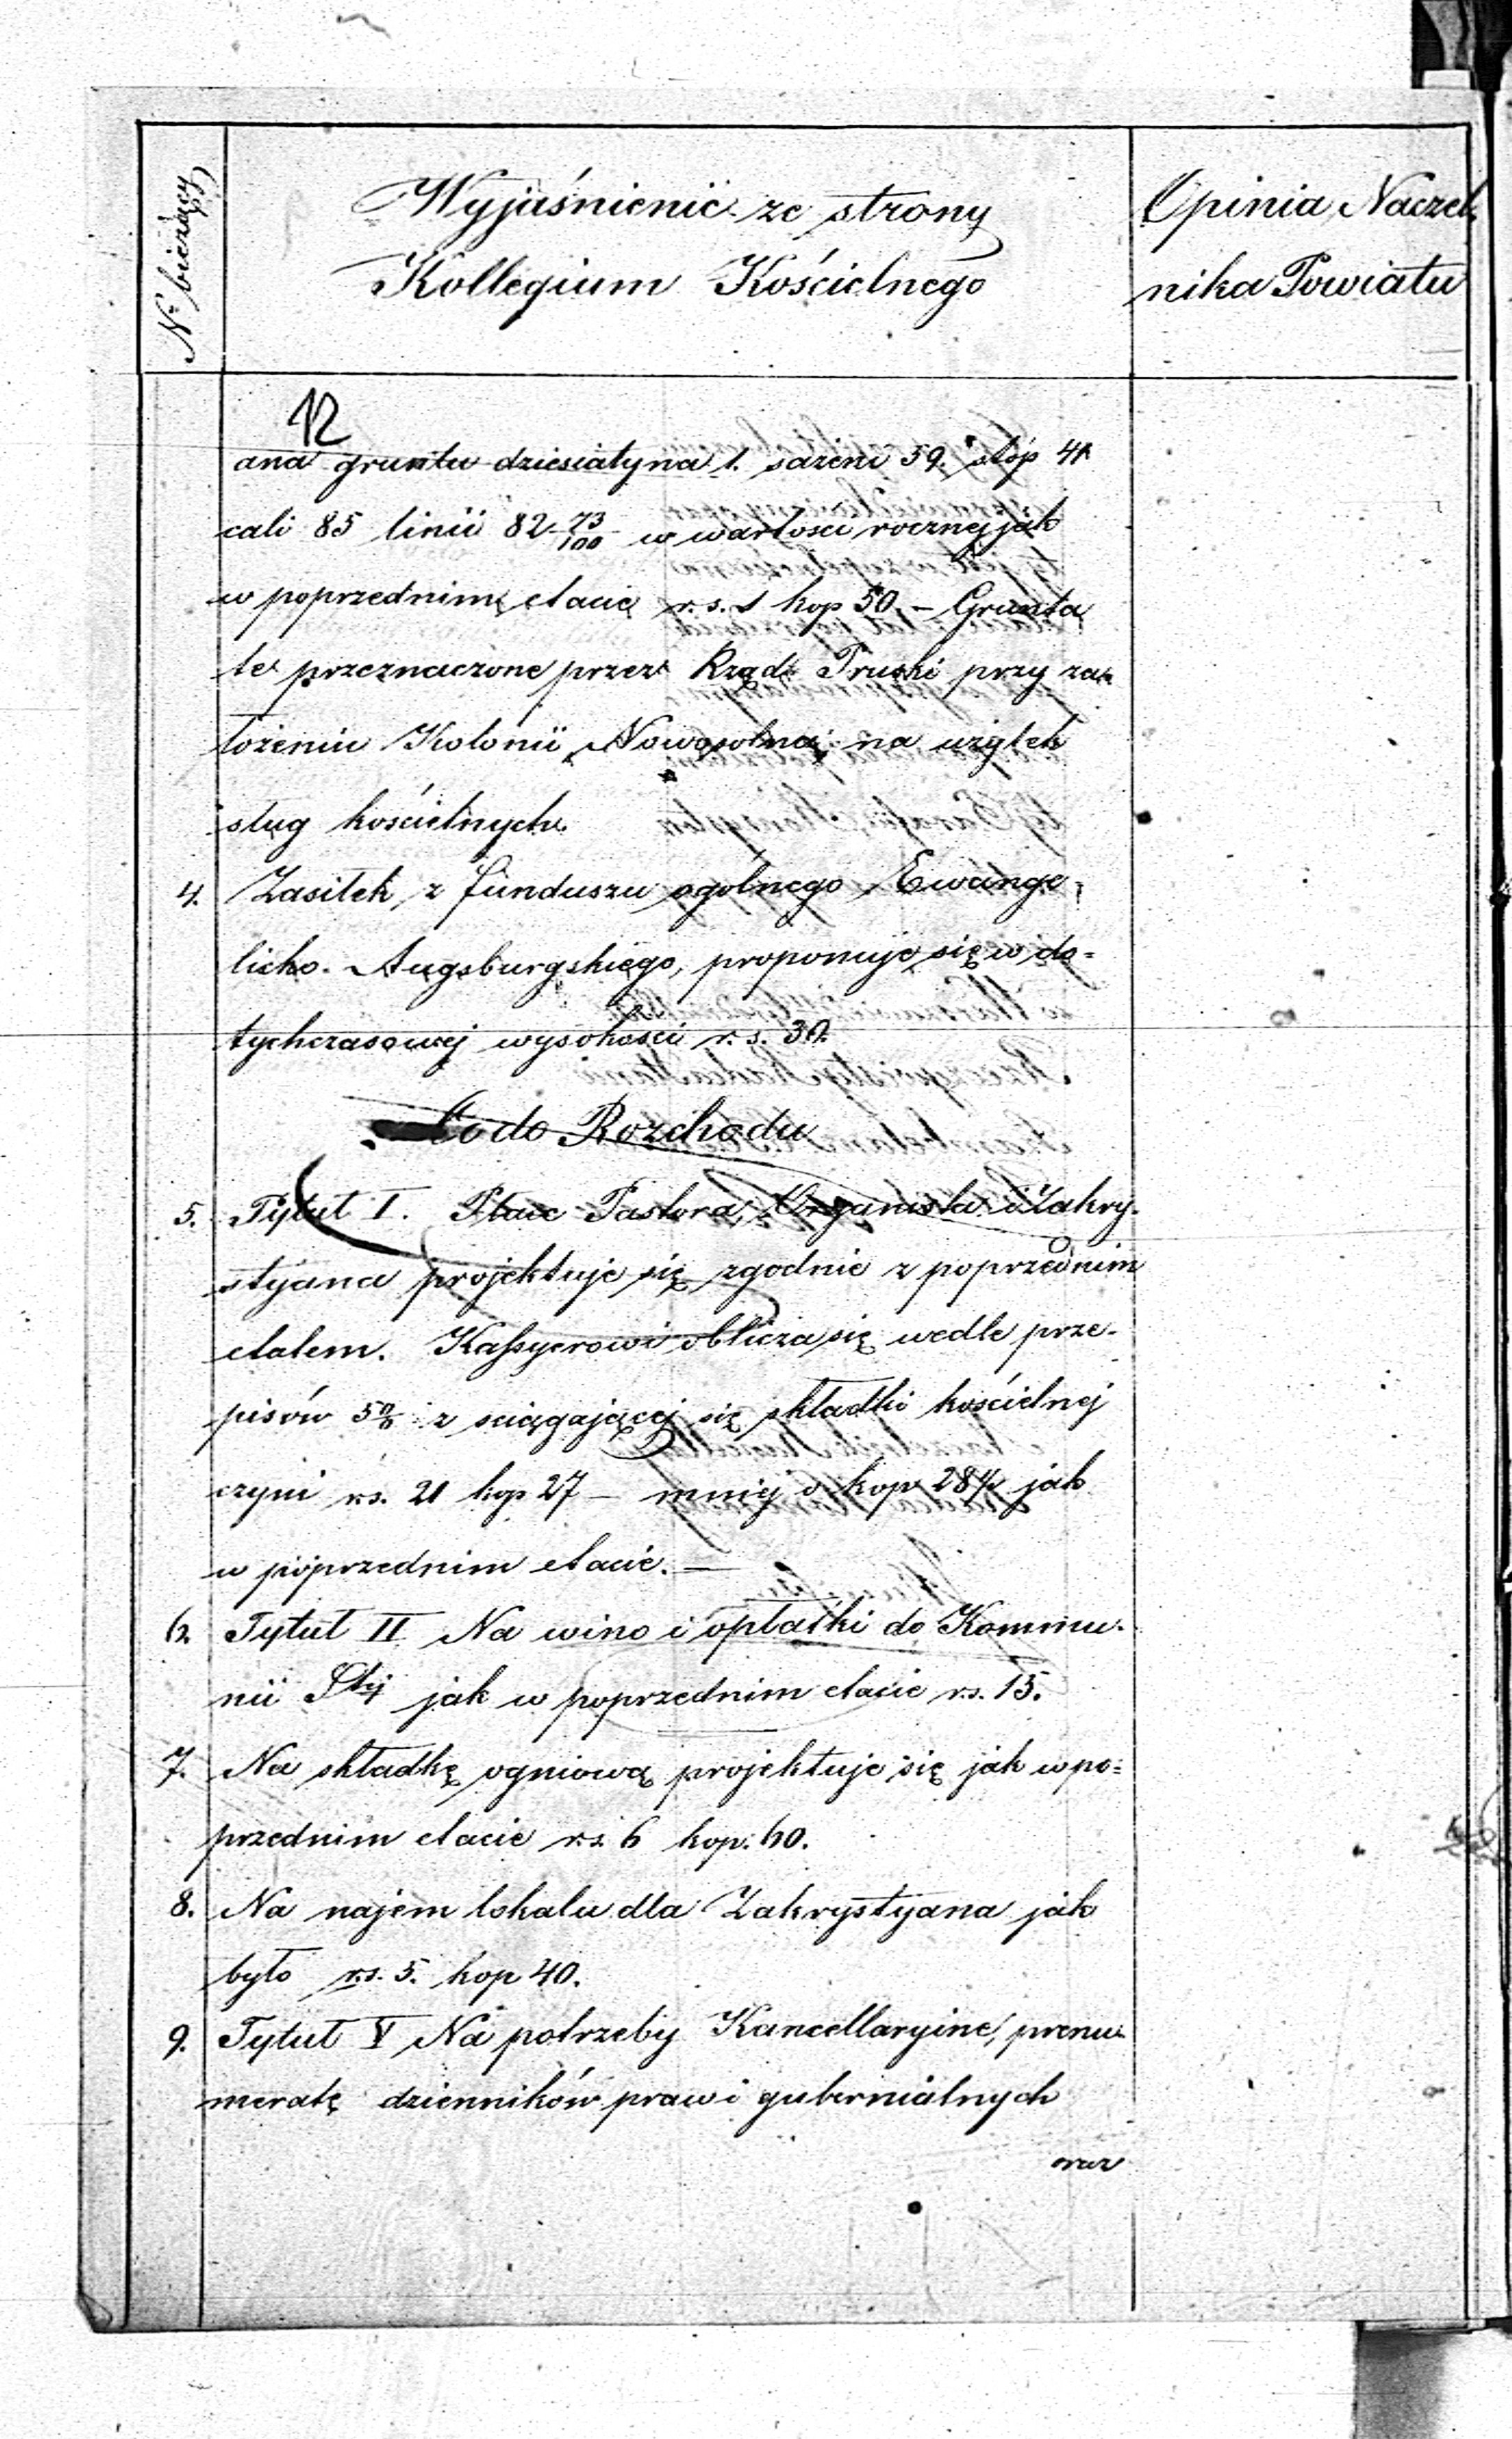 Nr bieżący
Wyjaśnienie ze strony
Kollegium Kościelnego
Opinia Naczel
nika Powiatu
12
ana gruntu dziesiatyna 1. sażeni 59. stóp 41
cali 85 linii 82 73/100 w wartości rocznej jak
w poprzednim etacie r. s. 1 kop 50. – Grunta
te przeznaczone przez Rząd Pruski przy za-
łożeniu Kolonii Nowosolna, na użytek
sług kościelnych.
4. Zasiłek z funduszu ogólnego Ewange-
licko-Augsburgskiego, proponuje się w do-
tychczasowej wysokości r. s. 30.
Co do Rozchodu
5. Tytuł I. Płace Pastora, Organista i Zakry-
styana projektuje się zgodnie z poprzednim
etatem. Kassyerowi oblicza się wedle prze-
pisów 5% z sciągającej się składki kościelnej
czyni rs. 21 kop 27 – mniej o kop 28½ jak
w poprzednim etacie. –
6. Tytuł II Na wino i opłatki do Kommu-
nii Stej jak w poprzednim etacie rs. 15.
7. Na składkę ogniową projektuje się jak w po-
przednim etacie rs. 6 kop. 60.
8. Na najem lokalu dla Zakrystyana jak
było rs. 5. kop 40.
9. Tytuł V Na potrzeby Kancellaryine, prenu-
meratę dzienników praw i gubernialnych
oraz